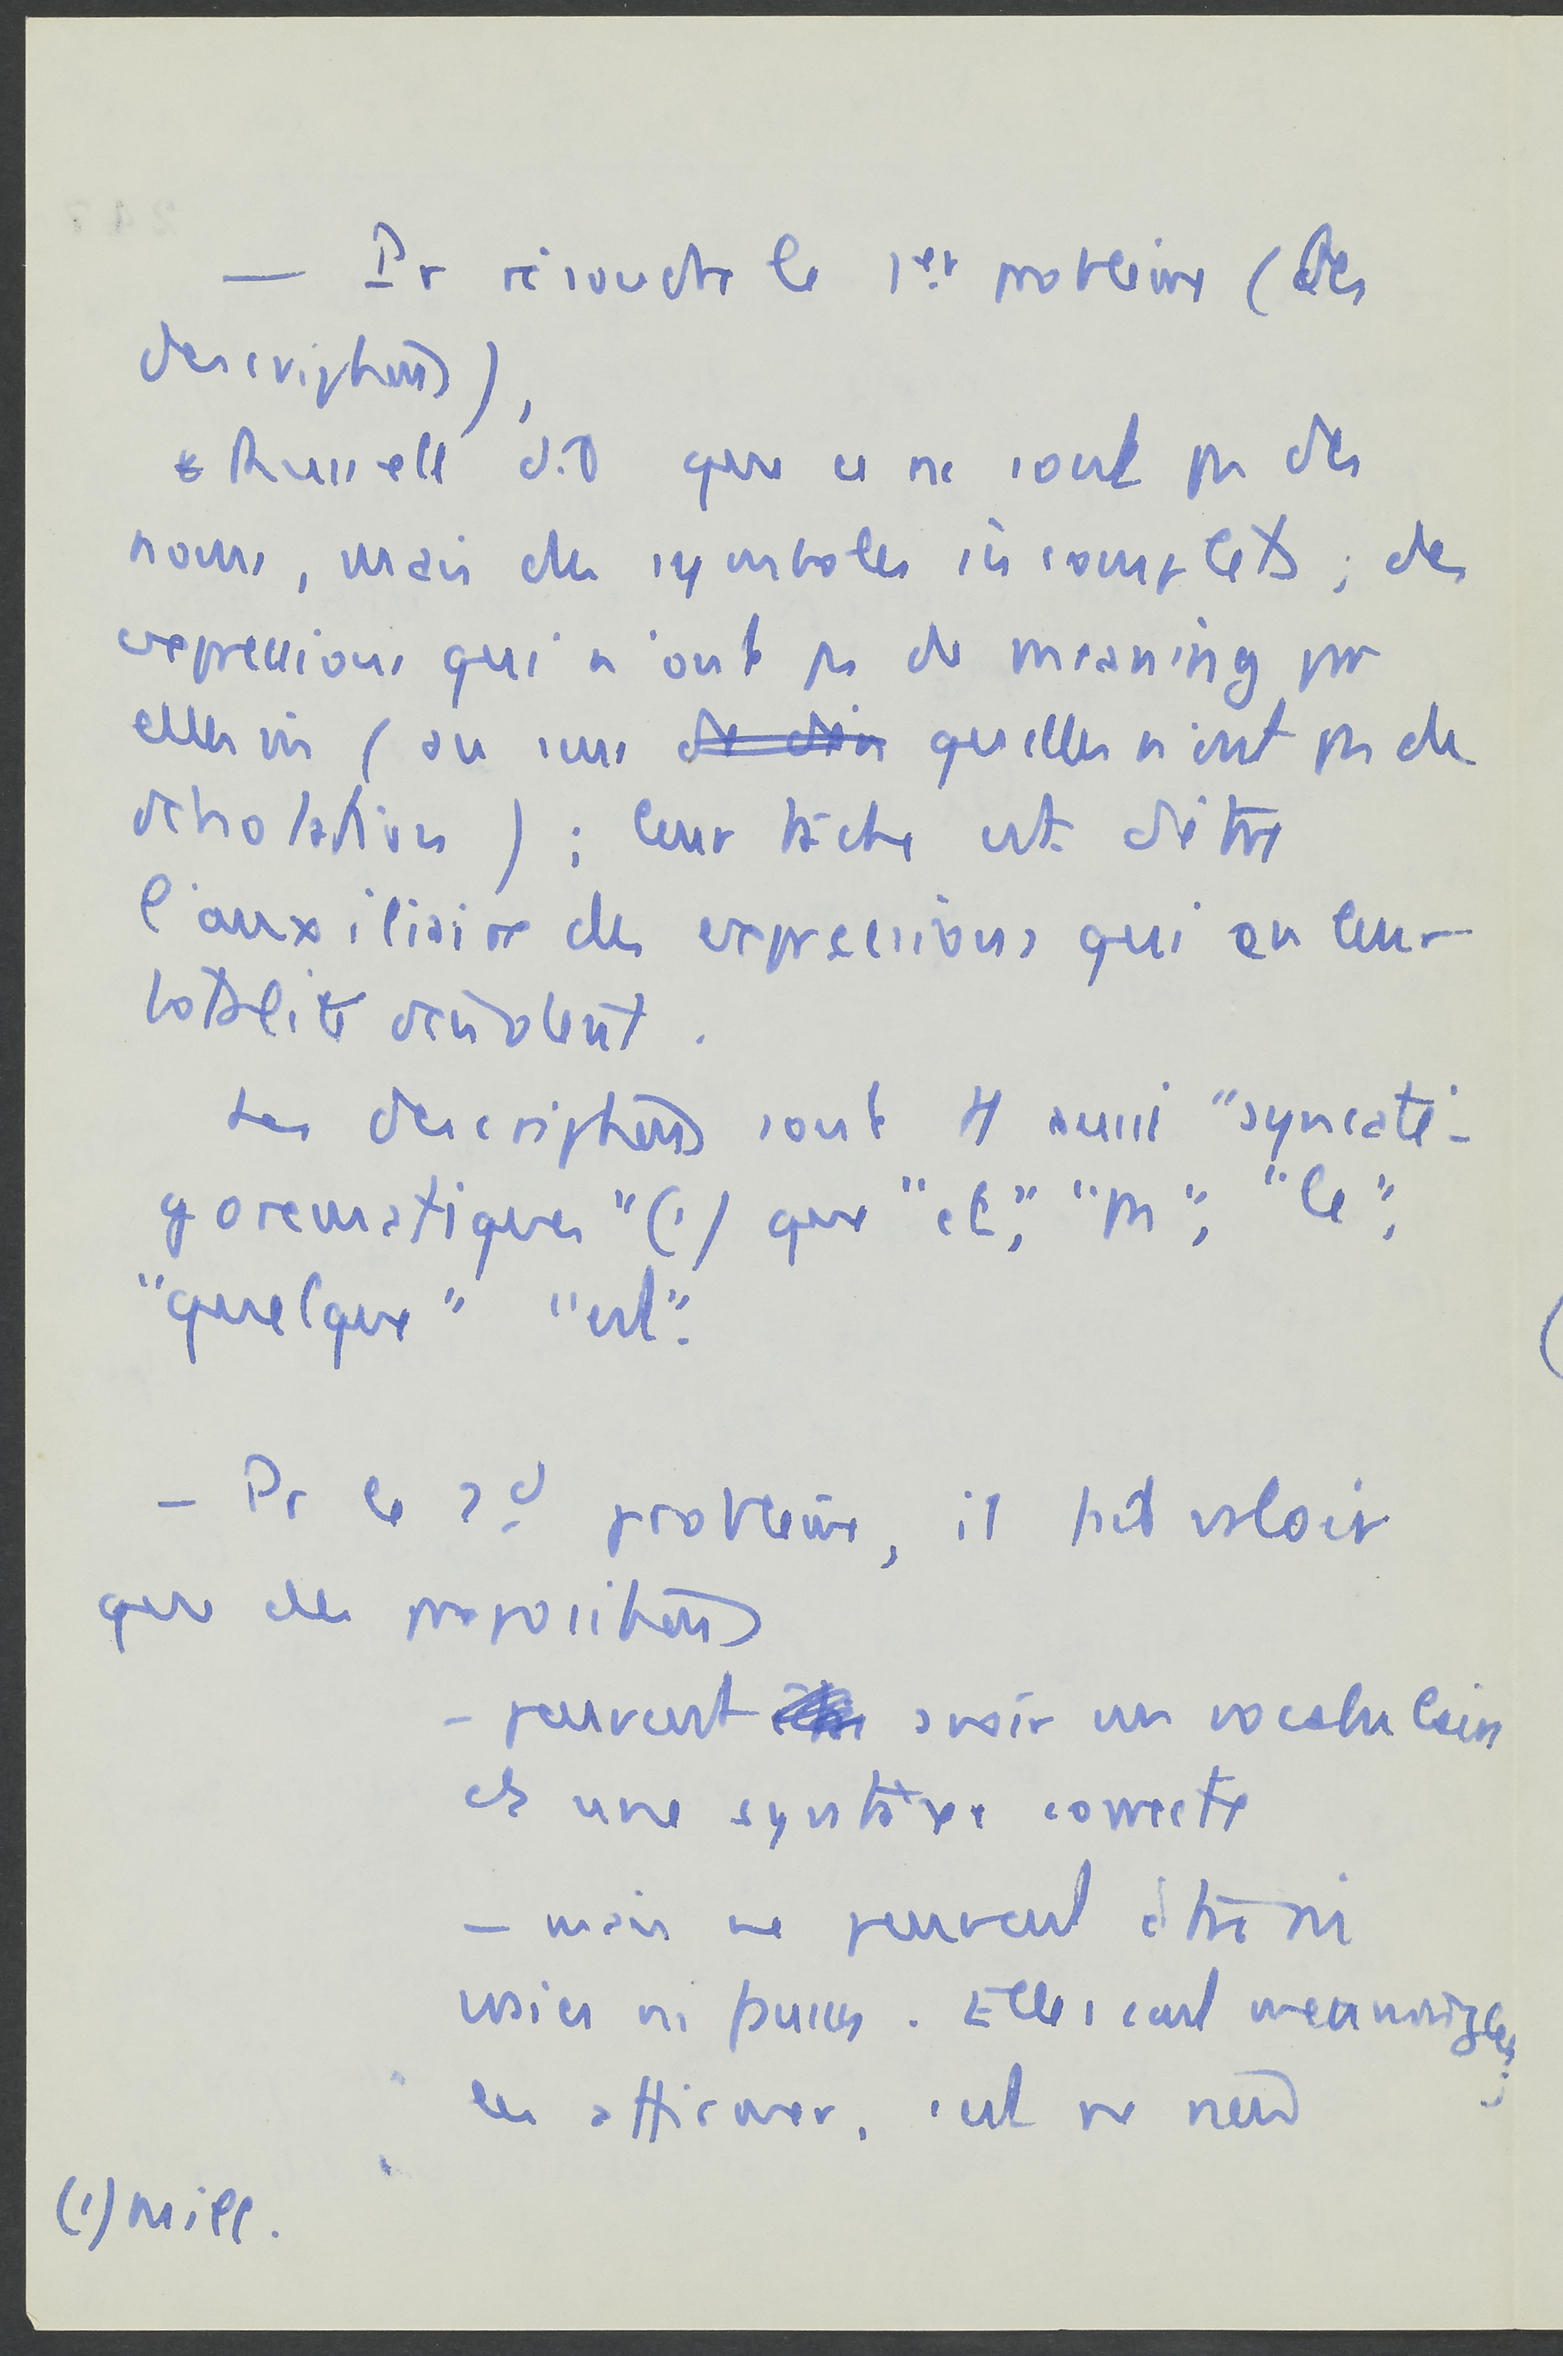 — Pr résoudre le 1er problème (des
descriptions),
Russell dit que ce ne sont pas des
noms, mais des symboles incomplets ; des
expressions qui n'ont pas de meaning par
elles mêmes (au sens de dire qu'elles n'ont pas de
dénotation) ; leur tâche est d'être
l'auxiliaire des expressions qui en leur
totalité dénotent.
Les descriptions sont tt aussi "syncaté-
gorematiques" (1) que "et", "pas", "le",
"quelque" "est".
— Pr le 2d problème, il fait valoir
que des propositions
- peuvent avoir un vocabulaire
et une syntaxe correcte
— mais ne peuvent être ni
vraies ni fausses. Elles sont meaningless ;
les affirmer, c'est ne rien
(1) Mill.